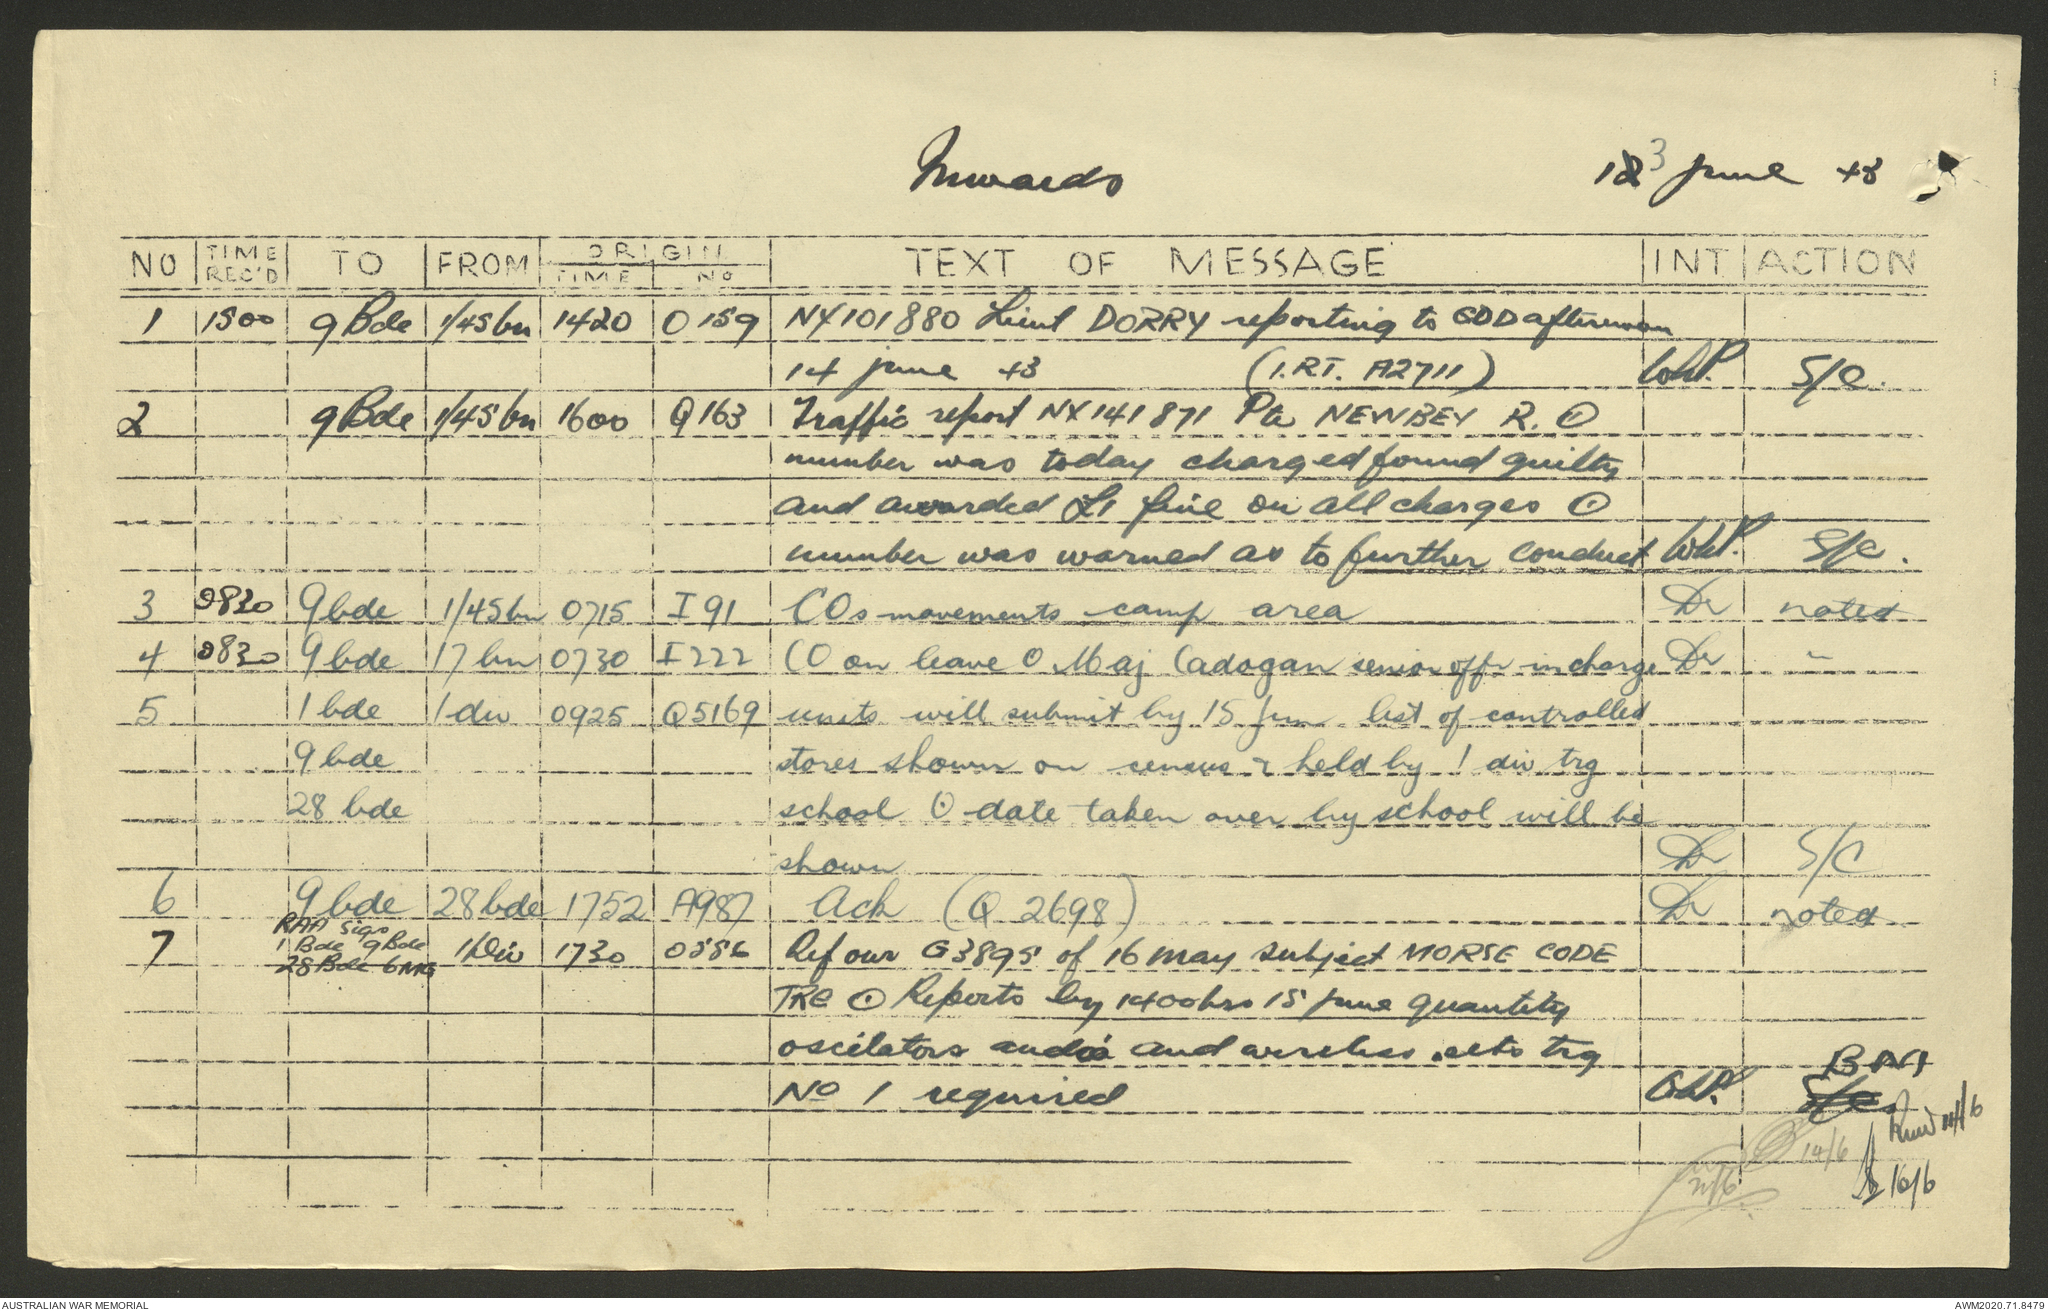 Inwards
13 June 43
NO | TIME REC'D | TO | FROM | ORIGIN TIME | ORIGIN No | TEXT OF MESSAGE | INT | ACTION
1 | 1500 | 9 Bde | 1/45 bn | 1420 | O 159 | NX101880 Lieut DORRY reporting to GDD afternoon
14 June 43 (1.RT. A2711) | WhP. | S/C.
2 | 9 Bde | 1/45 bn | 1600 | Q 163 | Traffic report NX141871 Pte NEWBEY R. ⊙
number was today charged found guilty
and awarded £1 fine on all charges ⊙
number was warned as to further conduct | WhP. | S/C.
3 | 0830 | 9 bde | 1/45 bn | 0715 | I 91 | COs movements camp area | Dr | noted
4 | 0830 | 9 bde | 17 bn | 0730 | I 222 | CO on leave ⊙ Maj Cadogan senior offr in charge | Dr | "
5 | 1 bde | 1 div | 0925 | Q5169 | units will submit by 15 Jun list of controlled
9 bde | stores shown on census & held by 1 div trg
28 bde | school ⊙ date taken over by school will be
shown | Dr | S/C
6 | 9 bde | 28 bde | 1752 | A987 | Ack (Q 2698) | Dr | noted
RAA Sigs
7 | 1 Bde 9 Bde | 1 Div | 1730 | 0586 | Ref our G3895 of 16 may subject MORSE CODE
28 Bde 6 MG
TRG ⊙ Reports by 1400 hrs 15 June quantity
oscilators audio and wireless sets trg
No 1 required | WhP. | BM
S/C
14/6
14/6
21/6
16/6
AUSTRALIAN WAR MEMORIAL
AWM2020.71.8479